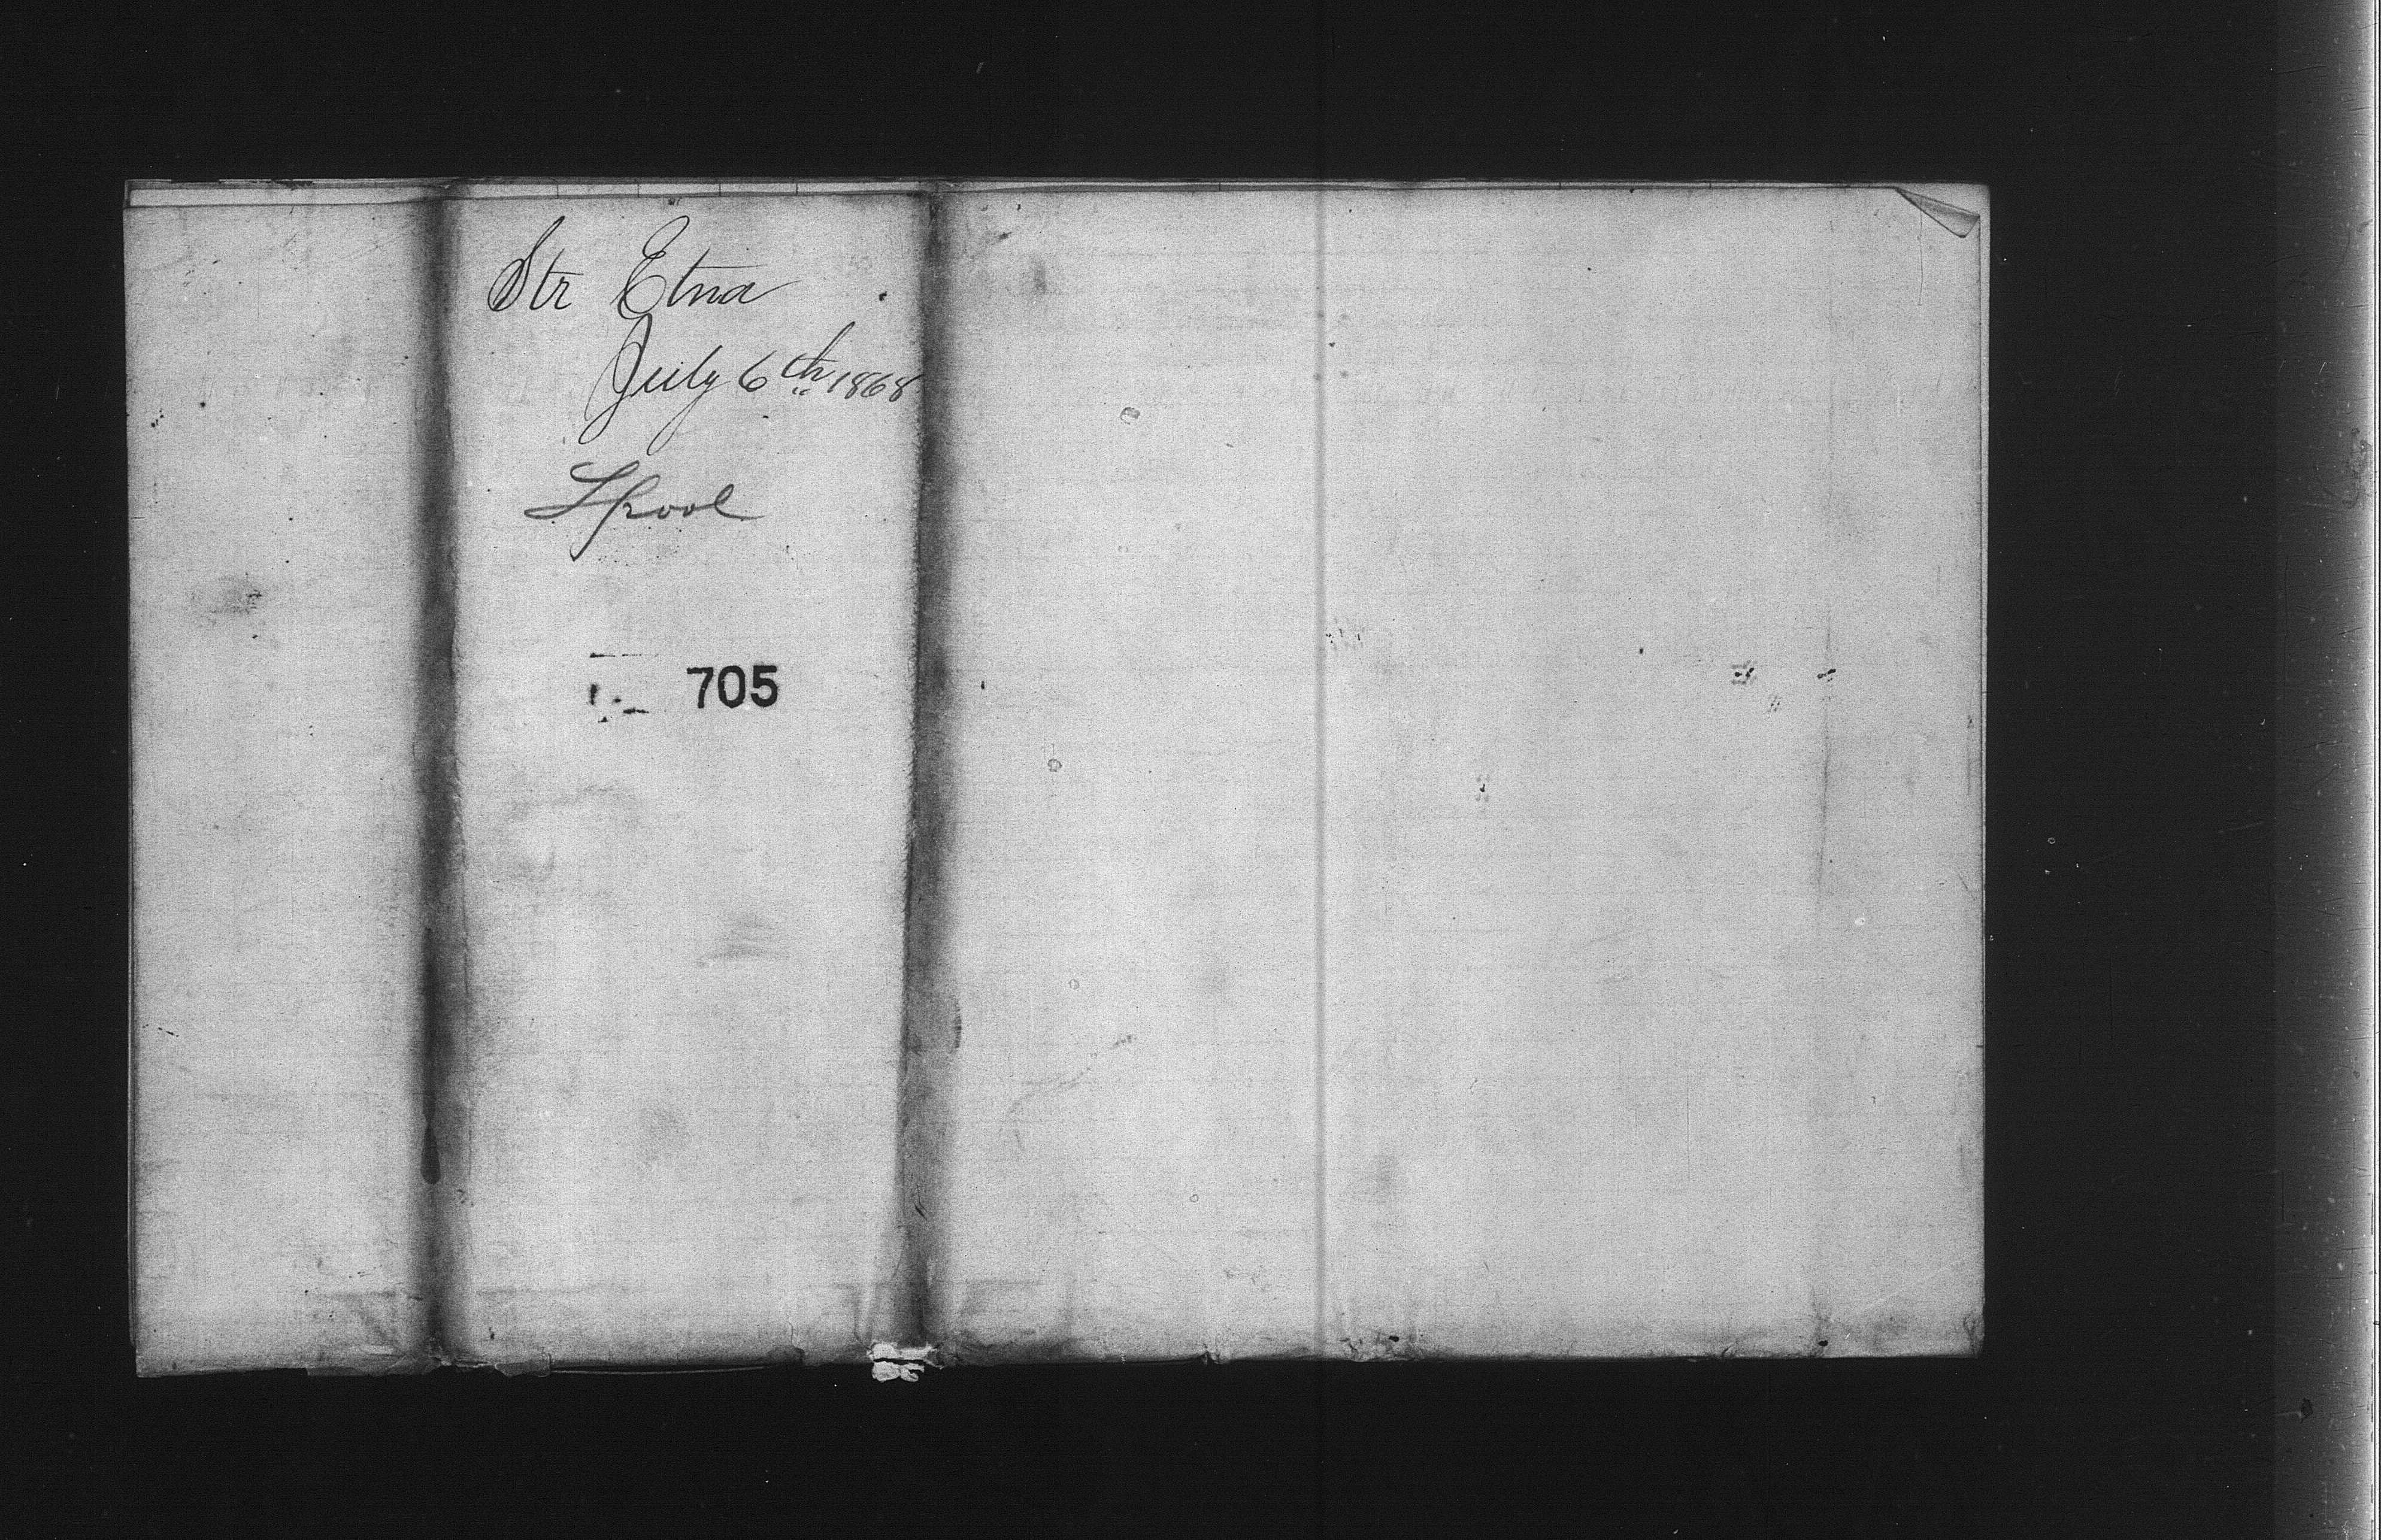 Str Etna
July 6th 1868
Lpool
705